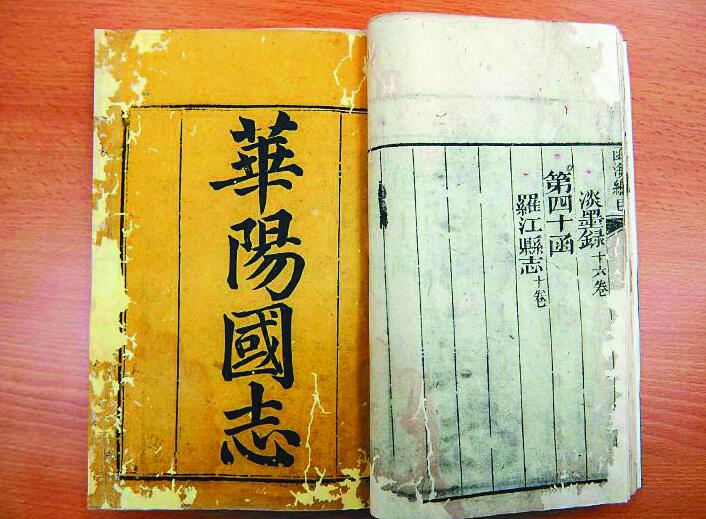 函海總目
淡墨録十六卷
第四十函
羅江縣志十卷
華陽國志